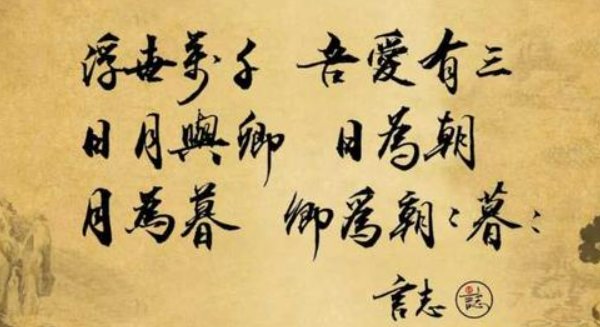 浮世萬千 吾愛有三
日月與卿 日為朝
月為暮 卿為朝〻暮〻
言志
誌